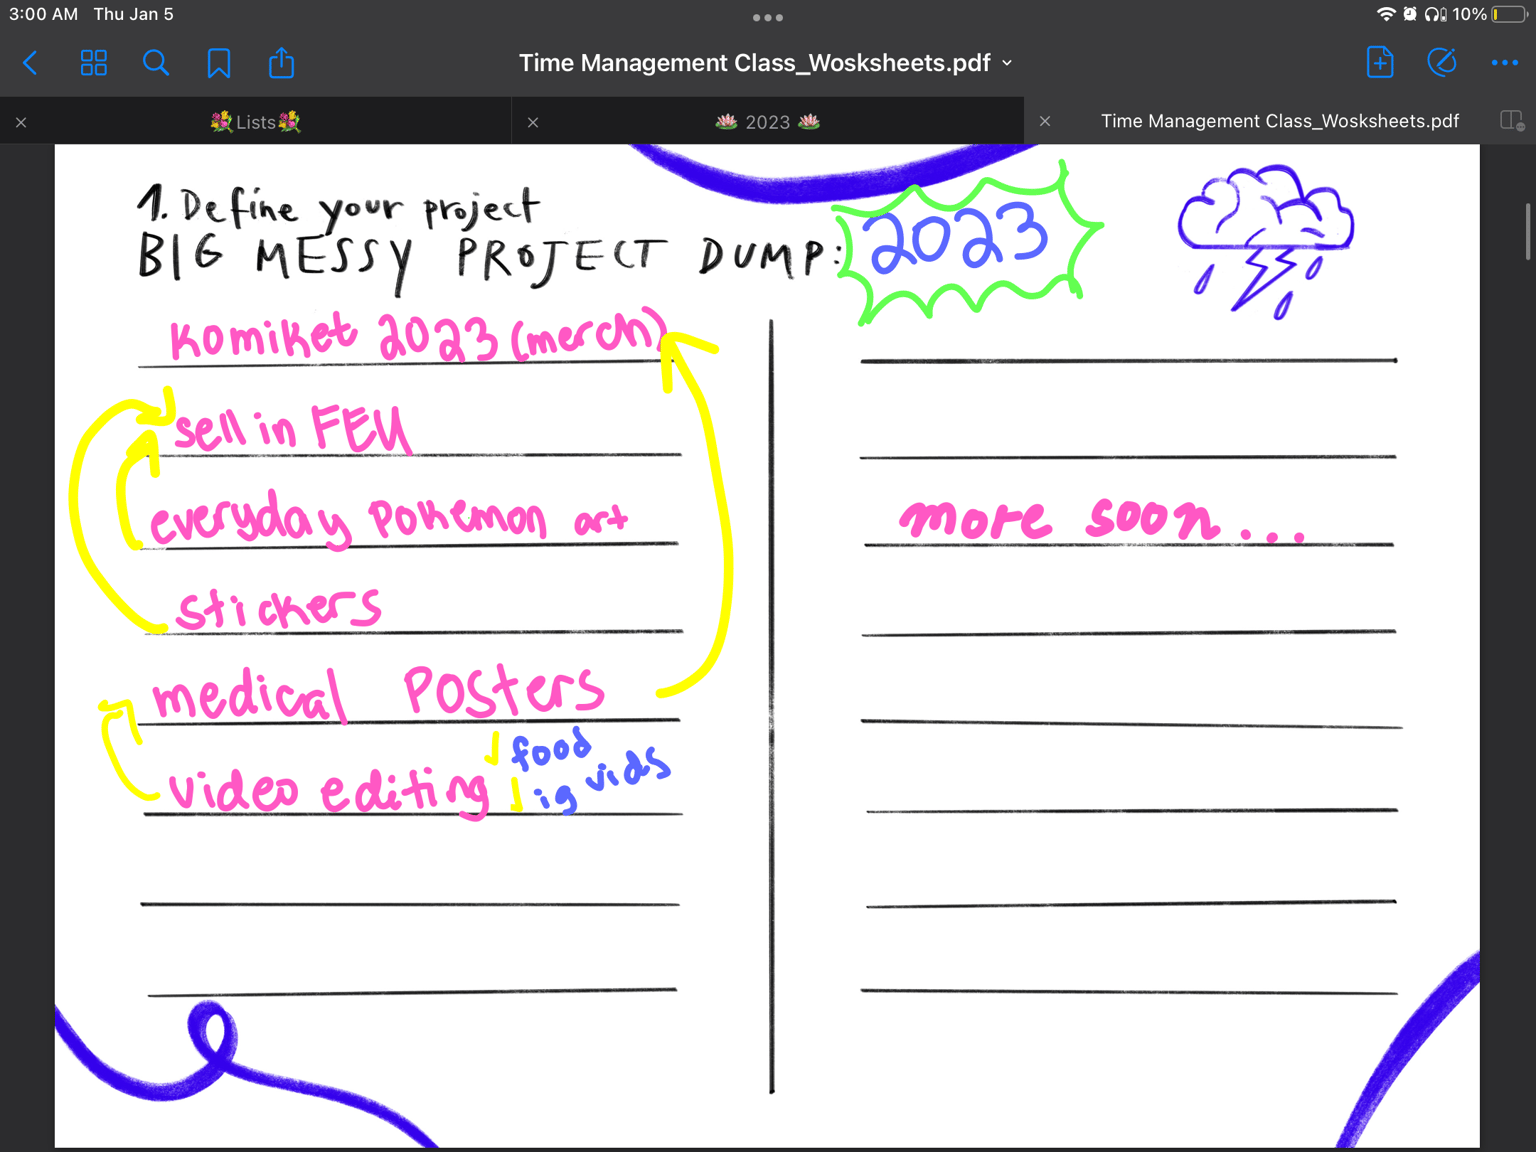 3:00 AM Thu Jan 5
10%
Time Management Class_Wosksheets.pdf
Lists
2023
Time Management Class_Wosksheets.pdf
1. Define your project
BIG MESSY PROJECT DUMP: 2023
Komiket 2023 (merch)
sell in FEU
everyday Pokemon art
stickers
medical Posters
video editing
food
ig vids
more soon...